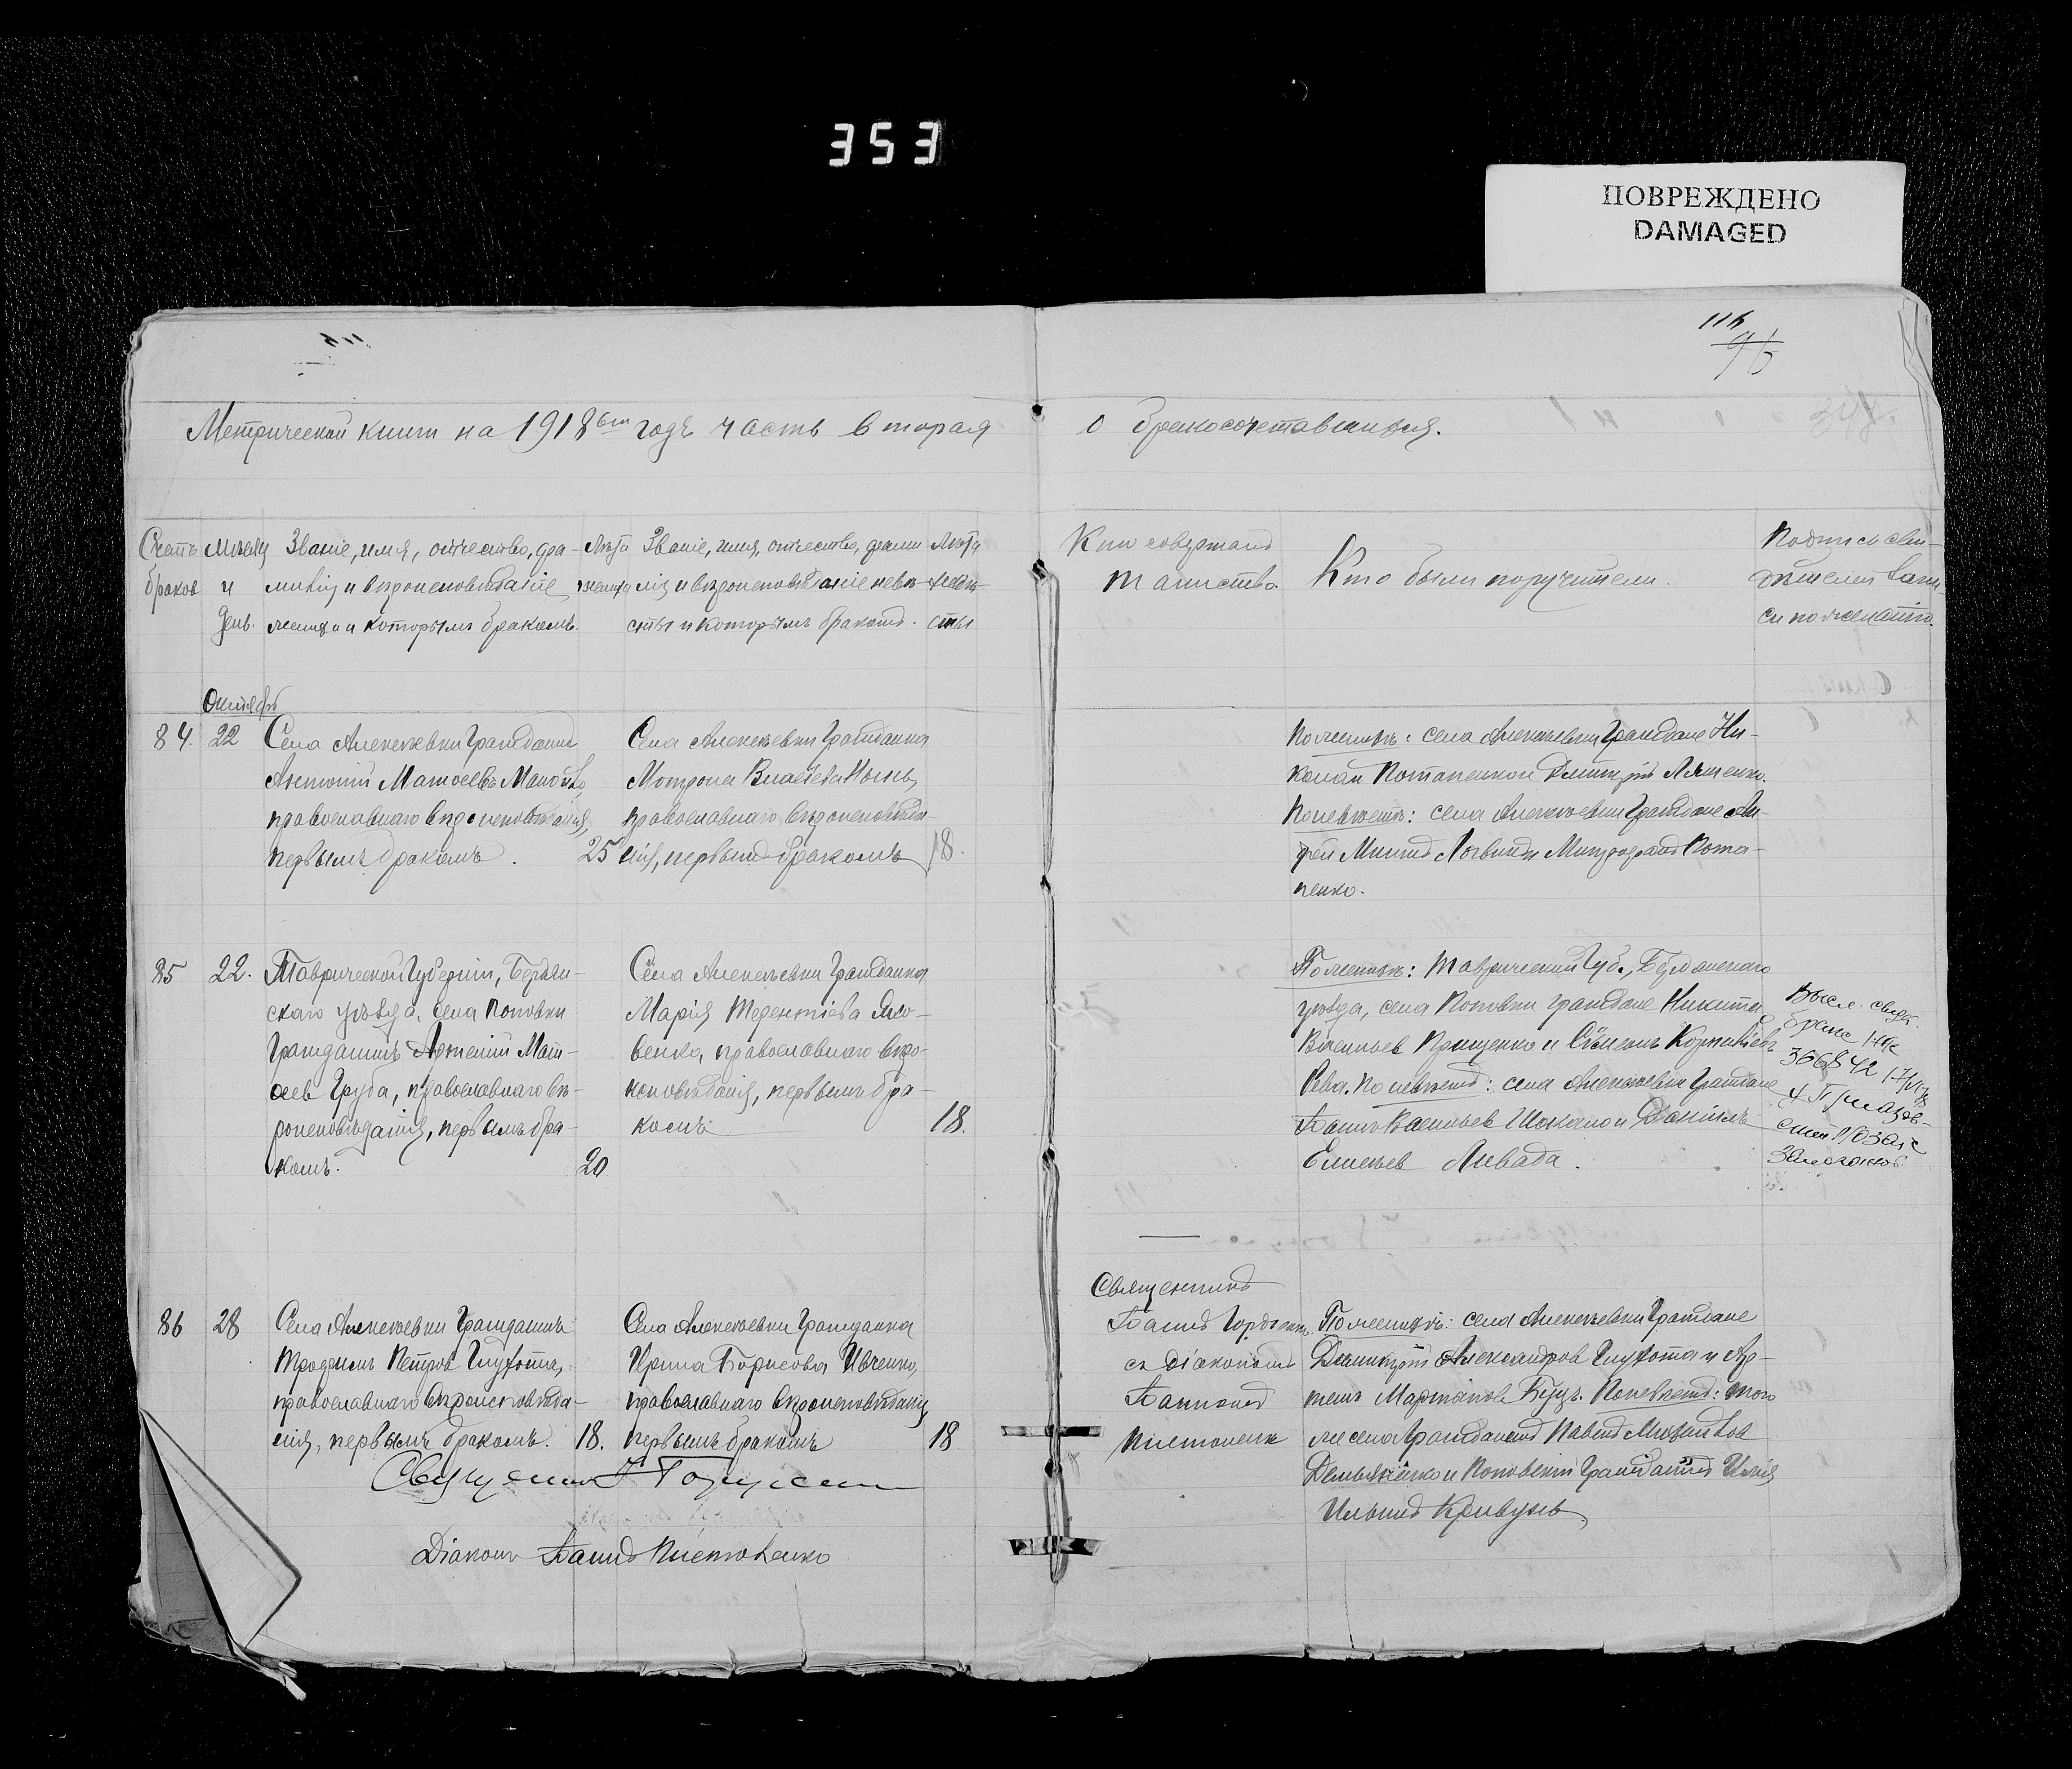 353
ПОВРЕЖДЕНО
DAMAGED
Метрической книги на 1918 годъ часть вторая
о бракосочетавшихся.
Счетъ браков
Мѣсяц и День.
Званіе, имя, отчество, фа-
милія и вѣроисповѣданіе
жениха и которымъ бракомъ.
Лѣта жениха
Званіе, имя, отчество, фами
лія и вѣроисповѣданіе невѣ-
сты и которымъ бракомъ.
Лѣта невѣ-
сты
Кто совершалъ
таинство.
Кто были поручители.
Октябрь
84. 22
Села Алексѣевки Гражданинъ
Антоній Матвеевъ
православнаго вѣроисповѣданія,
первымъ бракомъ. 25
Села Алексѣевки Гражданка
Мотрона
православнаго вѣроисповѣда-
нія, первымъ бракомъ 18.
По женихѣ: села Алексѣевки Граждане Ни-
колай Потапенко и Димитрій Ляшенко.
По невѣстѣ: села Алексѣевки Граждане Ан-
дрей Логвинъ и Митрофанъ Пота-
пенко.
85 22.
Таврической Губерніи, Бердян-
скаго уѣзда, села Поповки
Гражданинъ Артемій Мат-
веев Груба, православнаго вѣ-
роисповѣданія, первымъ бра-
комъ. 20
Села Алексѣевки Гражданка
Марія Терентіева Яко-
венко, православнаго вѣро-
исповѣданія, первымъ бра-
комъ 18.
По женихѣ: Таврической Губ., Бердянскаго
уѣзда, села Поповки граждане Никита
Васильев Прищенко и Корниліевъ
Рева. По невѣстѣ: села Алексѣевки Граждане
Іоаннъ Васильев Шокало и Даніилъ
Елисеев Ливада.
Высл. свидт.
браке
366842
86 28
Села Алексѣевки Гражданинъ
Трофимъ Петров Глухота,
православнаго вѣроисповѣда-
нія, первымъ бракомъ. 18.
Села Алексѣевки Гражданка
Ирина Борисова Ивченко,
православнаго вѣроисповѣданія
первымъ бракомъ 18
Священникъ
Іоаннъ
съ діакономъ
Іоанномъ
По женихѣ: села Алексѣевки Граждане
Димитрій Александров Глухота и Ар-
темъ Мартынов Буцъ. По невѣстѣ: того
же села Гражданинъ Павелъ Михайлов
Демьяненко и Поповскій Гражданинъ Илія
Ильинъ Кривунь
Священник І.
Діаконъ Іоаннъ